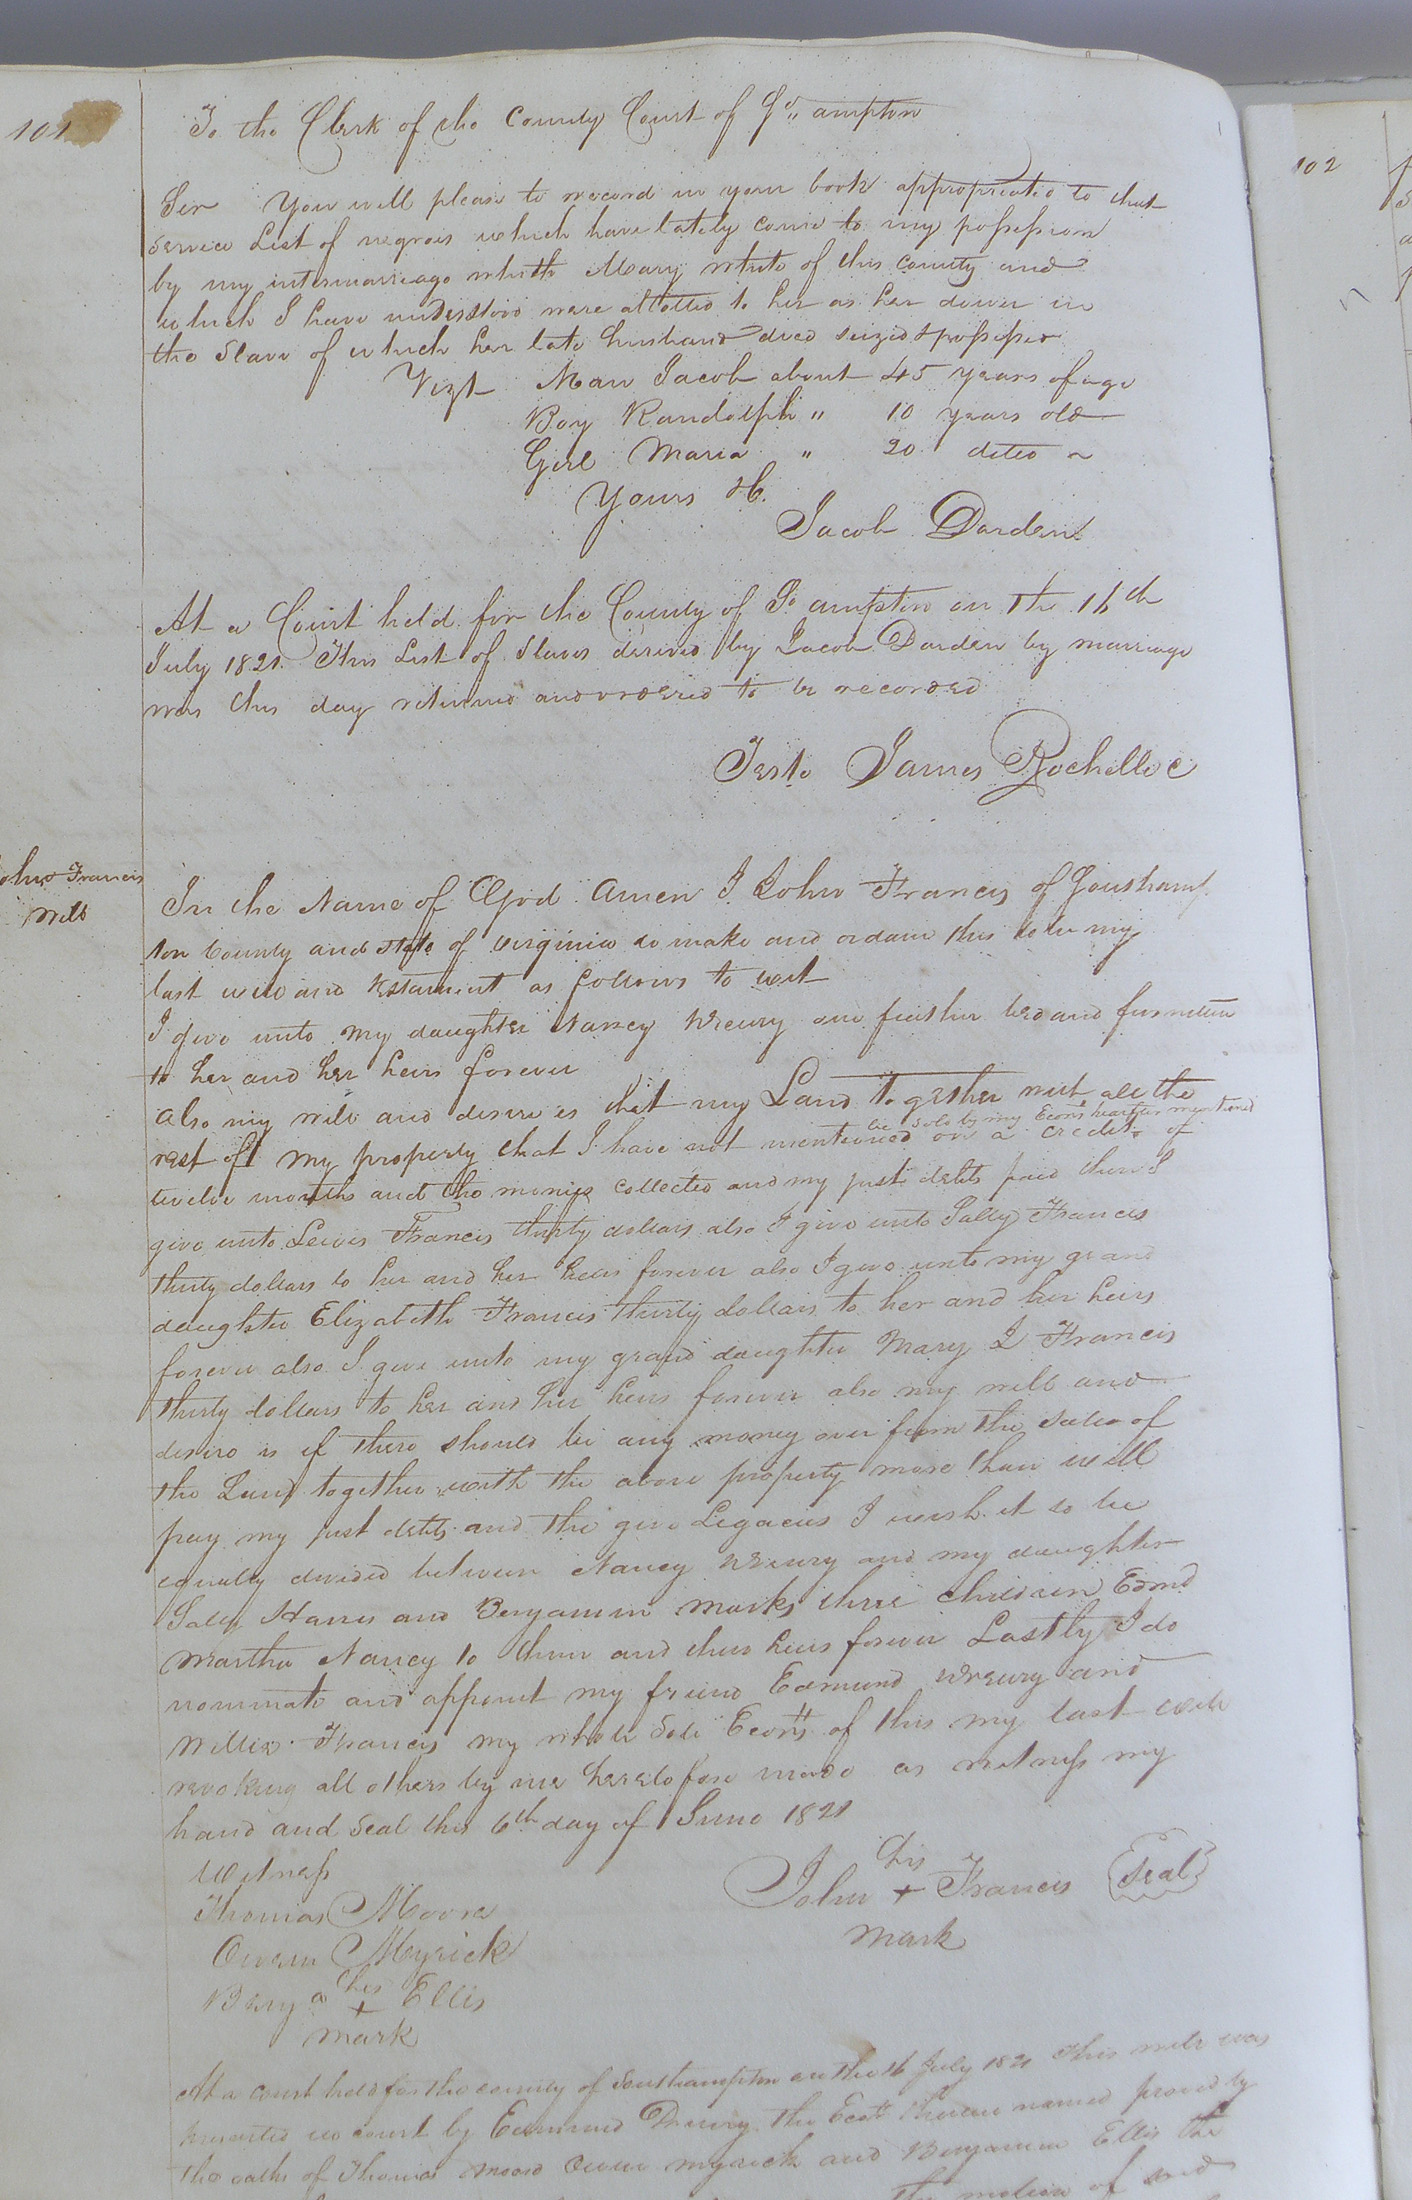 101
To the Clerk of the County Court of So,, ampton
Sir You will please to record in your book appropriated to that
service List of negroes which have lately come to my possession
by my intermarriage whith Mary White of this county and
which I have understood were allotted to her as her dower in
the Slave of which her late husband died seized & possessed
Vizt Man Jacob about 45 years of age
Boy Randolph " 10 years old
Girl Maria " 20 ditto
Yours &c.
Jacob Darden
At a Court held for the County of So ampton on the 16th
July 1821. This List of Slaves derived by Jacob Darden by marriage
was this day returned and ordered to be recorded
Teste James Rochelle C
John Francis
Will
In the Name of God Amen I John Francis of Southamp
ton County and State of Virginia do make and ordain this to be my
last will and testament as follows to wit
I give unto my daughter Nancy Drewry one feather bed and furniture
to her and her heirs forever
also my will and desire is that my Land together with all the
be sold by my Ecors hearafter mentioned
rest of my property that I have not mentioned on a credit of
twelve months and the moneys collected and my just debts paid then I
give unto Lewis Francis thirty dollars also I give unto Sally Francis
thirty dollars to her and her heirs forever also I give unto my grand
daughter Elizabeth Francis thirty dollars to her and her heirs
forever also I give unto my grand daughter Mary I Francis
thirty dollars to her and her heirs forever also my will and
desire is if there should be any money over from the sales of
the Land together with the above property more than will
pay my just debts and the give Legacies I wish it to be
equally divided between Nancy Drewry and my daughter
Sally Harris and Benjamin Marks three children Edmd
Martha Nancy to them and their heirs forever Lastly I do
nominate and appoint my friend Edmund Drewry and
Willis Francis my whole Sole Ecors of this my last will
revoking all others by me heretofore made as witness my
hand and Seal this 6th day of June 1821
Witness
his
John + Francis Seal
mark
Thomas Moore
Owen Myrick
his
Benja + Ellis
mark
At a court held for the county of Southampton on the 16 July 1821 This will was
presented in court by Edmund Drewry the Ecor therein named proved by
the oaths of Thomas Moore Owen Myrick and Benjamin Ellis the
the motion of said
102